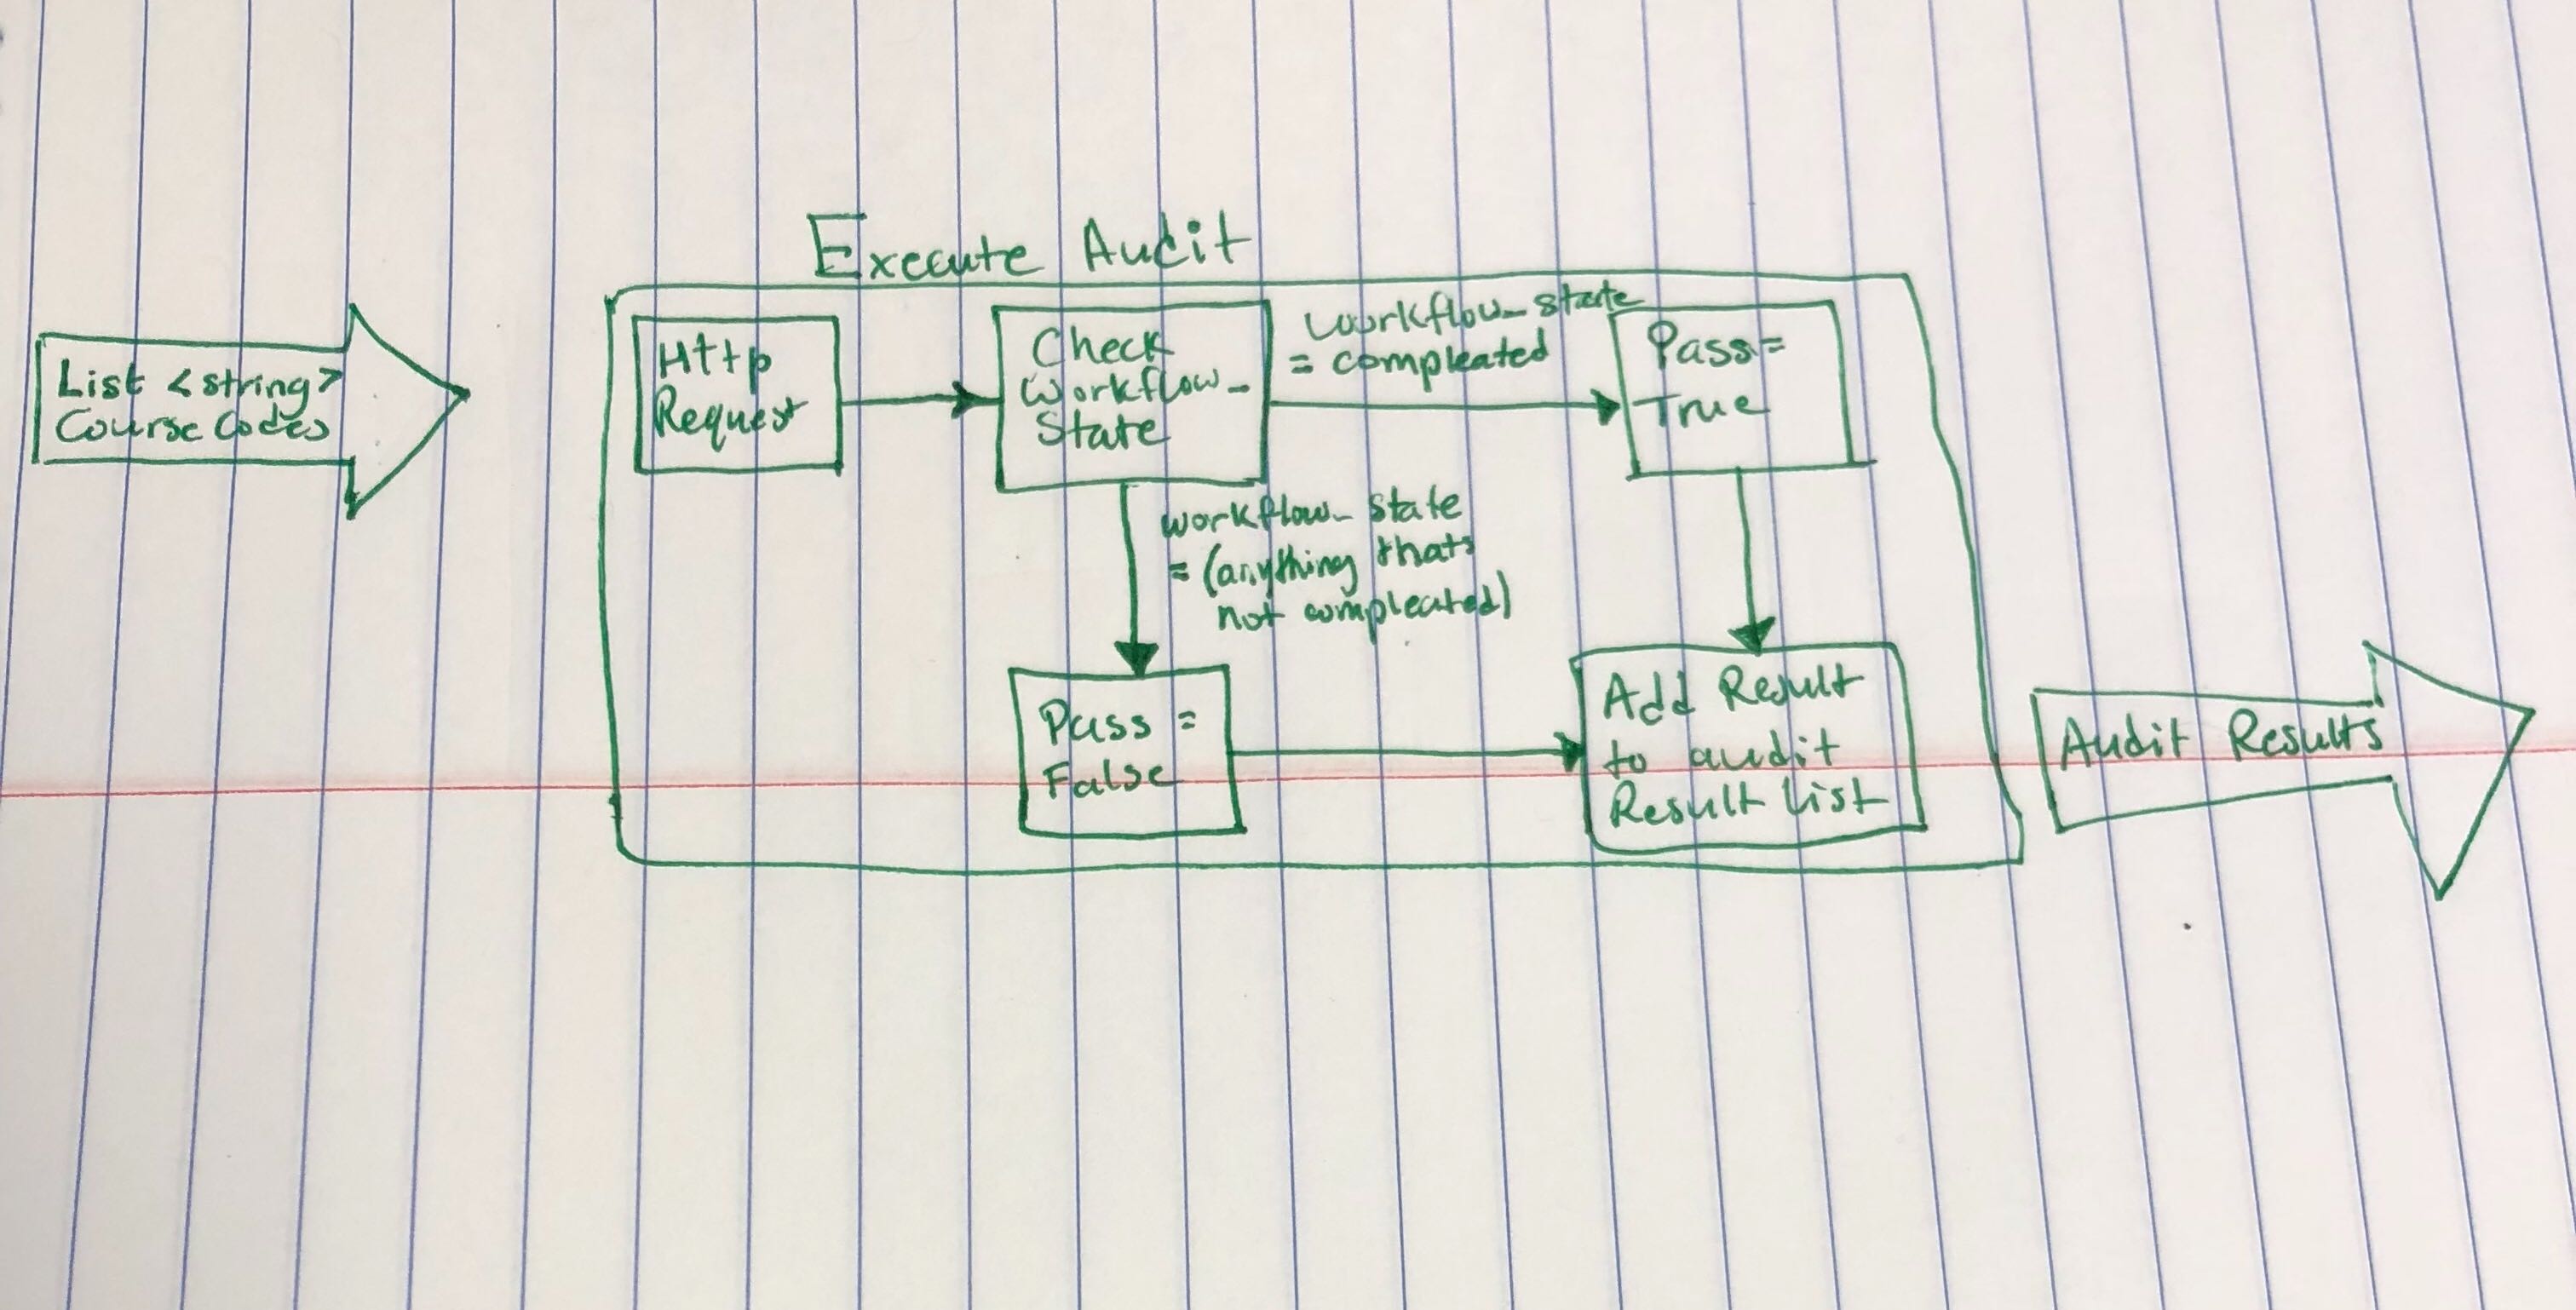 Execute Audit
List <string>
Course Codes
Http
Request
Check
Workflow_
State
workflow_state
= compleated
Pass =
True
workflow_state
= (anything thats
not compleated)
Pass =
False
Add Result
to audit
Result List
Audit Results